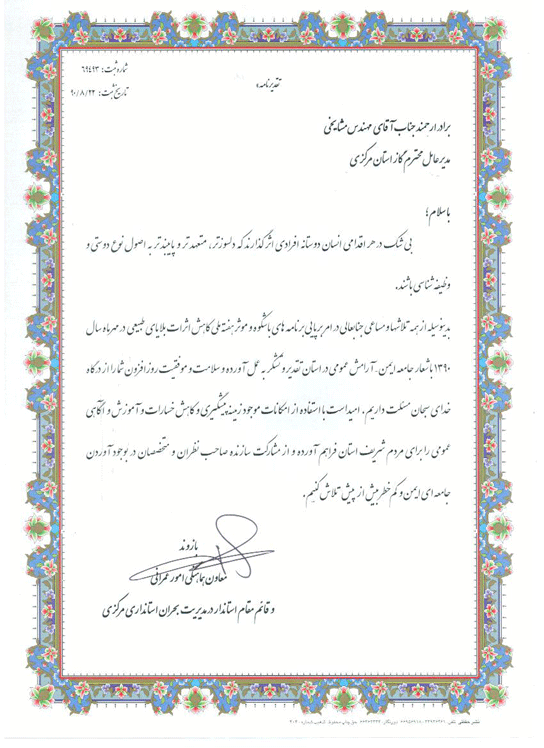 شماره ثبت: ۶۹۴۹۳
تاریخ ثبت: ۹۰/۸/۲۲
تقدیرنامه
برادر ارجمند جناب آقای مهندس مشایخی
مدیرعامل محترم گاز استان مرکزی
با سلام؛
بی شک در هر اقدامی انسان دوستانه افرادی اثرگذارند که دلسوزتر، متعهدتر و پایبندتر به اصول نوع دوستی و
وظیفه شناسی باشند.
بدینوسیله از همه تلاشها و مساعی جنابعالی در امر برپایی برنامه های باشکوه و موثر هفته ملی کاهش اثرات بلایای طبیعی در مهرماه سال
۱۳۹۰ با شعار جامعه ایمن - آرامش عمومی در استان تقدیر و تشکر به عمل آورده و سلامت و موفقیت روز افزون شما را از درگاه
خدای سبحان مسئلت داریم. امید است با استفاده از امکانات موجود زمینه پیشگیری و کاهش خسارات و آموزش و آگاهی
عمومی را برای مردم شریف استان فراهم آورده و از مشارکت سازنده صاحب نظران و متخصصان در بوجود آوردن
جامعه ای ایمن و کم خطر بیش از پیش تلاش کنیم.
بازوند
معاون هماهنگی امور عمرانی
و قائم مقام استاندار در مدیریت بحران استانداری مرکزی